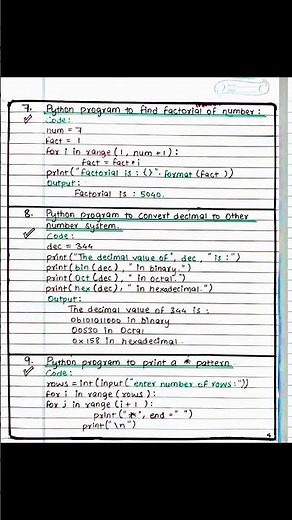 7. Python program to find factorial of number :
Code:
num = 7
fact = 1
for i in range (1, num +1) :
fact = fact * i
print ("factorial is : {}". format (fact ))
Output:
Factorial is : 5040.
8. Python program to convert decimal to other
number system.
Code :
dec = 344
print ("The decimal value of", dec , " is :")
print (bin (dec) , " in binary.")
print (Oct (dec) , " in octal.")
print (hex (dec), " in hexadecimal.")
Output:
The decimal value of 344 is :
0b101011000 in binary
0o530 in Octal
0x158 in hexadecimal.
9. Python program to print a * pattern.
Code :
rows = int (input ("enter number of rows:"))
for i in range (rows) :
for j in range (i + 1 ) :
print ("*", end =" ")
print ("\n")